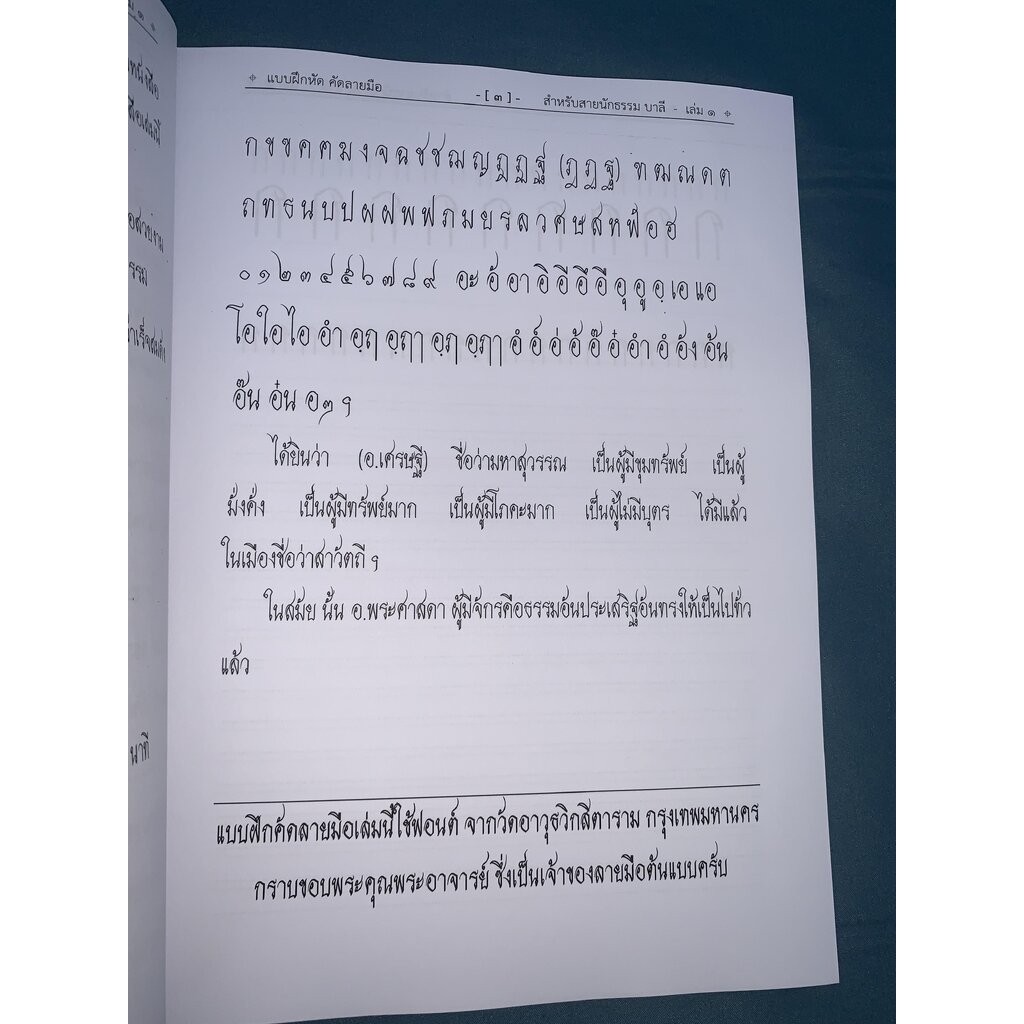 แบบฝึกหัด คัดลายมือ -[ ๓ ]- สำหรับสายนักธรรม บาลี - เล่ม ๑
ก ข ฃ ค ฅ ฆ ง จ ฉ ช ซ ฌ ญ ฎ ฏ ฐ (ฎ ฏ ฐ) ฑ ฒ ณ ด ต
ถ ท ธ น บ ป ผ ฝ พ ฟ ภ ม ย ร ล ว ศ ษ ส ห ฬ อ ฮ
๐ ๑ ๒ ๓ ๔ ๕ ๖ ๗ ๘ ๙ อะ อั อา อิ อี อึ อื อุ อู อฺ เอ แอ
โอ ใอ ไอ อำ
อ๊น อ๋น อๆ ฯ
ได้ยินว่า (อ.เศรษฐี) ชื่อว่ามหาสุวรรณ เป็นผู้มีขุมทรัพย์ เป็นผู้
มั่งคั่ง เป็นผู้มีทรัพย์มาก เป็นผู้มีโภคะมาก เป็นผู้ไม่มีบุตร ได้มีแล้ว
ในเมืองชื่อว่าสาวัตถี ฯ
ในสมัย นั้น อ.พระศาสดา ผู้มีจักรคือธรรมอันประเสริฐอันทรงให้เป็นไปทั่ว
แล้ว
แบบฝึกคัดลายมือเล่มนี้ใช้ฟอนต์ จากวัดอาวุธวิกสิตาราม กรุงเทพมหานคร
กราบขอบพระคุณพระอาจารย์ ซึ่งเป็นเจ้าของลายมือต้นแบบครับ
นาที